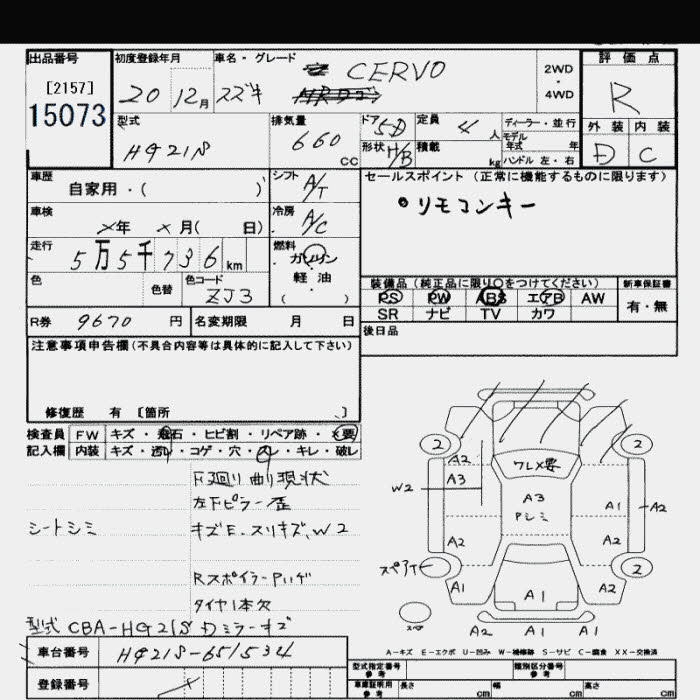 出品番号 初度登録年月 車名・グレード 評価点
[2157] 20 12月 スズキ CERVO 2WD・4WD R
15073
型式 排気量 ドア 5D 定員 4人 ディーラー・並行
HG21S 660cc 形状 H/B 積載 kg モデル年式 年 ハンドル 左・右
外装 内装
D C
車歴 シフト セールスポイント (正常に機能するものに限ります)
自家用・( ) A/T
リモコンキー
車検 冷房
×年 ×月( 日) A/C
走行 燃料
5万5千736km ガソリン
軽油
色 色替 色コード ( )
ZJ3
装備品 (純正品に限り○をつけてください) 新車保証書
PS PW ABS エアB AW 有・無
SR ナビ TV カワ
R券 9670円 名変期限 月 日
後日品
注意事項申告欄 (不具合内容等は具体的に記入して下さい)
修復歴 有 〔箇所 〕
検査員 FW キズ・飛石・ヒビ割・リペア跡・×要
記入欄 内装 キズ・汚レ・コゲ・穴・スレ・キレ・破レ
F廻り曲り現状
左Fピラー歪
シートシミ キズE.スリキズ、W2
Rスポイラー
タイヤ1本欠
型式 CBA-HG21S Dミラーキズ
2 2
A2 ワレX要
A3
W2 A3 A1 A2
Pシミ
A2 A2
スペアタイヤー 2
A1 A1 A2
A2 A1 A1
A-キズ E-エクボ U-凹み W-補修跡 S-サビ C-腐食 XX-交換済
車台番号 HG21S-651534
登録番号
型式指定番号 参考 類別区分番号 参考
車庫証明用 参考 長さ cm 幅 cm 高さ cm